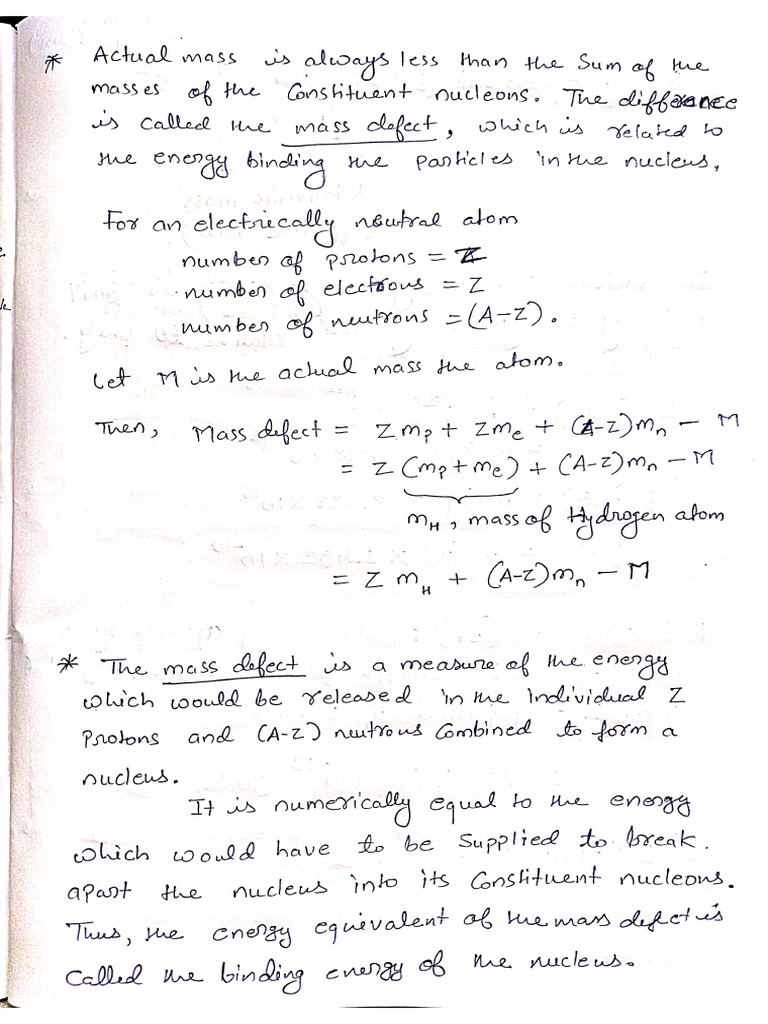 * Actual mass is always less than the sum of the
masses of the Constituent nucleons. The difference
is called the mass defect, which is related to
the energy binding the particles in the nucleus,
For an electrically neutral atom
number of protons = Z
number of electrons = Z
number of neutrons = (A-Z).
Let M is the actual mass the atom.
Then, Mass defect = Zmp + Zme + (A-Z)mn - M
= Z (mp + me) + (A-Z)mn - M
mH, mass of Hydrogen atom
= Z mH + (A-Z)mn - M
* The mass defect is a measure of the energy
which would be released in the individual Z
protons and (A-Z) neutrons Combined to form a
nucleus.
It is numerically equal to the energy
which would have to be supplied to break.
apart the nucleus into its Constituent nucleons.
Thus, the energy equivalent of the mass defect is
Called the binding energy of the nucleus.